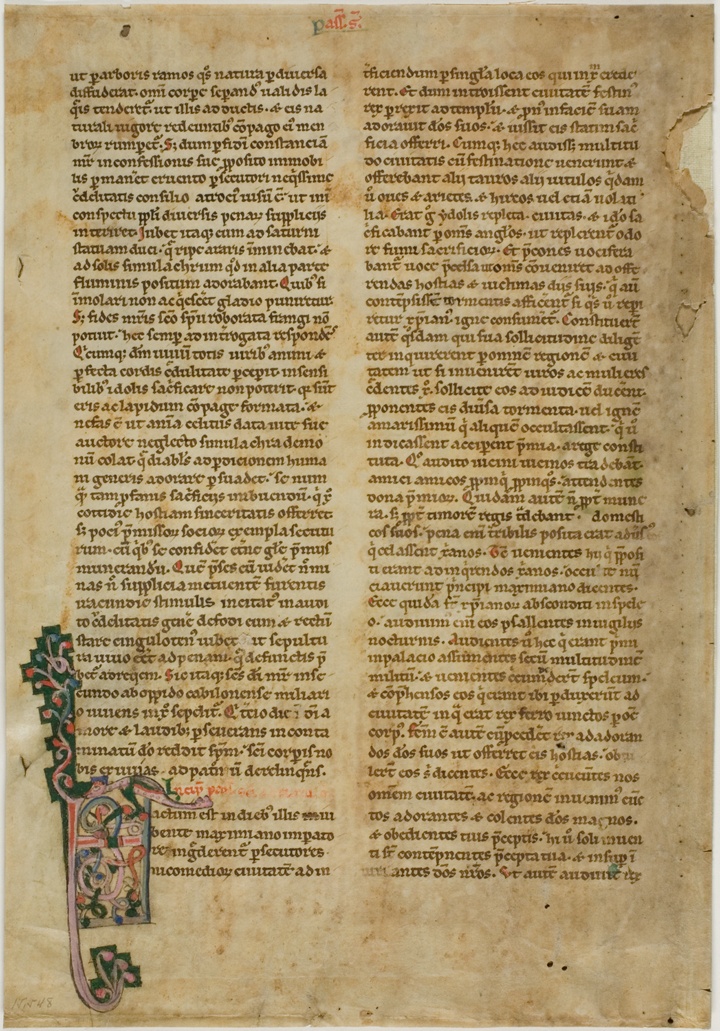 Pass. S.
ut ꝑ arboris ramos qͦs natura ꝑ diuersa
diffuderat. omī corpͤ seꝑandū ualidis la
qͥs tenderet̃. ut illis adductis. ⁊ eis na
turali uigore redeuntibꝰ cōpago eiꝰ mem
broꝝ rumperet̃. Sꝫ dum ꝑfidi constanciā
mr̄ in confessionis sue ꝓposito immobi
lis ꝑmaner& cruento ꝑsecutori neqͥssime
c̃delitatis consilio atroci iusū ē ut in
conspectu ppl̄i diuersis penaꝝ suppliciis
interiret. Iubet itaqꝫ eum ad saturni
statuam duci. q̄ ripe araris īminebat. ⁊
ad solis simulachrum qd̄ in alia parte
fluminis positum adorabant. Quibꝰ si
īmolari non acqͥescer& gladio puniretur.
Sꝫ fides mr̄is sc̄o sp̄u roborata frangi nō
potuit. hec semꝑ ad int̃rogata respondēs.
Qͥcumqꝫ dn̄m uiuū totis uiribꝰ animi ⁊
ꝑfecta cordis c̃dulitate ꝑcepit insensi
bilibꝰ idolis sac̃ficare non poterit. q̄ sūt
eris ac lapidum cōpage formata. ⁊
nefas ē ut anīa celitus data uite sue
auctore neglecto simulachra demo
nū colat. q̄ diabolꝰ ad ꝑdicionem huma
ni generis adorare ꝑsuadet.
qͣ tam ꝓfanis sac̃ficiis imbuendū.
cotidie hostiam sinceritatis offerret
sꝫ pociꝰ p̄missoꝝ socioꝝ exempla secutu
rum. cū qͥbꝰ se confidet et̃ne gl̄e p̄miis
munerandū. Que p̄ses cū uidet
nas
iracundie stimulis incitatꝰ inaudi
to c̃delitatis gn̄e defodi eum ⁊ rectū
stare cingulotenꝰ iubet ut sepultu
ra uiuo eēt ad penam. q̄ defunctis p̄
bet ad requiem. Sic itaqꝫ
cundo ab oppido cabilonense miliari
o uiuens iux̃ sepelit̃. Et t̃cio die ī dī a
more ⁊ laudibꝰ ꝑseuerans in conta
minatū dō reddit sp̄m. sc̄i corpis no
bis exuuias ad patriā ū derelinqns.
Incip̄
Factum est in diebꝰ illis
bente maximiano imꝑato
re īg̃derent̃ ꝑsecutores
nicomedioꝝ ciuitatē ad in
t̃ficiendum ꝑ singl̄a loca eos qui in xp̄m crede
rent. Et dum introissent ciuitatē festinꝰ
rex ꝑrexit ad templū. ⁊ ꝓnꝰ in faciē suam
adorauit dōs suos. ⁊ iussit eis statim sac̃
ficia offerri. Cumqꝫ hec audiss& multitu
do ciuitatis cū festinatione uenerunt ⁊
offerebant alii tauros alii uitulos qͥdam
ū oues ⁊ arietes. ⁊ hircos uel etiā uolati
lia. Erat g̊ ydolis repleta ciuitas. ⁊ ido sa
c̃ficabant ꝑ om̄s anglōs. ut replerent̃ odo
re fumi sacrificioꝝ. Et p̄cones uocifera
bant̃ uoce p̄celsa ut om̄s conuenirēt ad offe
rendas hostias ⁊ uictimas diis suis. qͥ aū
contēpsissēt tormentis afficerent̃
retur xp̄ianꝰ. igne consumeret̃. Constituerūt
autē qͦsdam qui sua sollicitudine diligēt̃
ter inquirerent ꝑ omnē regionē ⁊ ciui
tatem ut si inuenirēt uiros ac mulieres
c̃dentes xp̄o. sollicite eos ad iudicē ducerēt.
ꝓponentes eis diūsa tormenta. uel ignē
amarissimū qͥ aliquē occultassent. qͥ ū
indicassent acciperent p̄mia. a rege consti
tuta. Qͦ audito uicini uicinos t̃debant.
amici amicos ꝓpinqͥ ꝓpinqͦs. attendentes
dona p̄mioꝝ. Quidam autē n̄ ꝓpt̃ mune
ra. sꝫ ꝓpt̃ timorē regis t̃debant domesti
cos suos. pena enī t̃ribilis posita erat
qͥ celassent xp̄ianos. Tūc uenientes hi qͥ p̄posi
ti erant ad inqͥrendos xp̄ianos.
ciauerunt p̄ncipi maximiano dicentes.
Ecce quidā st̄ xp̄ianoꝝ absconditi in spelē
o. audiuimꝰ enī eos psallentes in uigiliis
nocturnis. Audientes ū hec qͥ erant p̄mi
in palacio assūmentes secū multitudinē
militū. ⁊ uenientes circumdeder̄t speleum.
⁊ cōp̄hensos eos qͥ erant ibi ꝑduxerunt ad
ciuitatē in qͣ erat rex ferro uinctos ꝑ
corpꝰ. adoran
dos dōs suos ut offerret eis hostias.
dicentes. Ecce rex ceucietes nos
omēm ciuitatē. ac regionē inuenimꝰ cūc
tos adorantes ⁊ colentes dōs magnos.
⁊ obedientes tuis p̄ceptis. hi ū soli inuen
ti st̄ contēpnentes p̄cepta tua. ⁊ insuꝑ ī
iuriantes dōs nr̄os. Ut autē audiuit rex